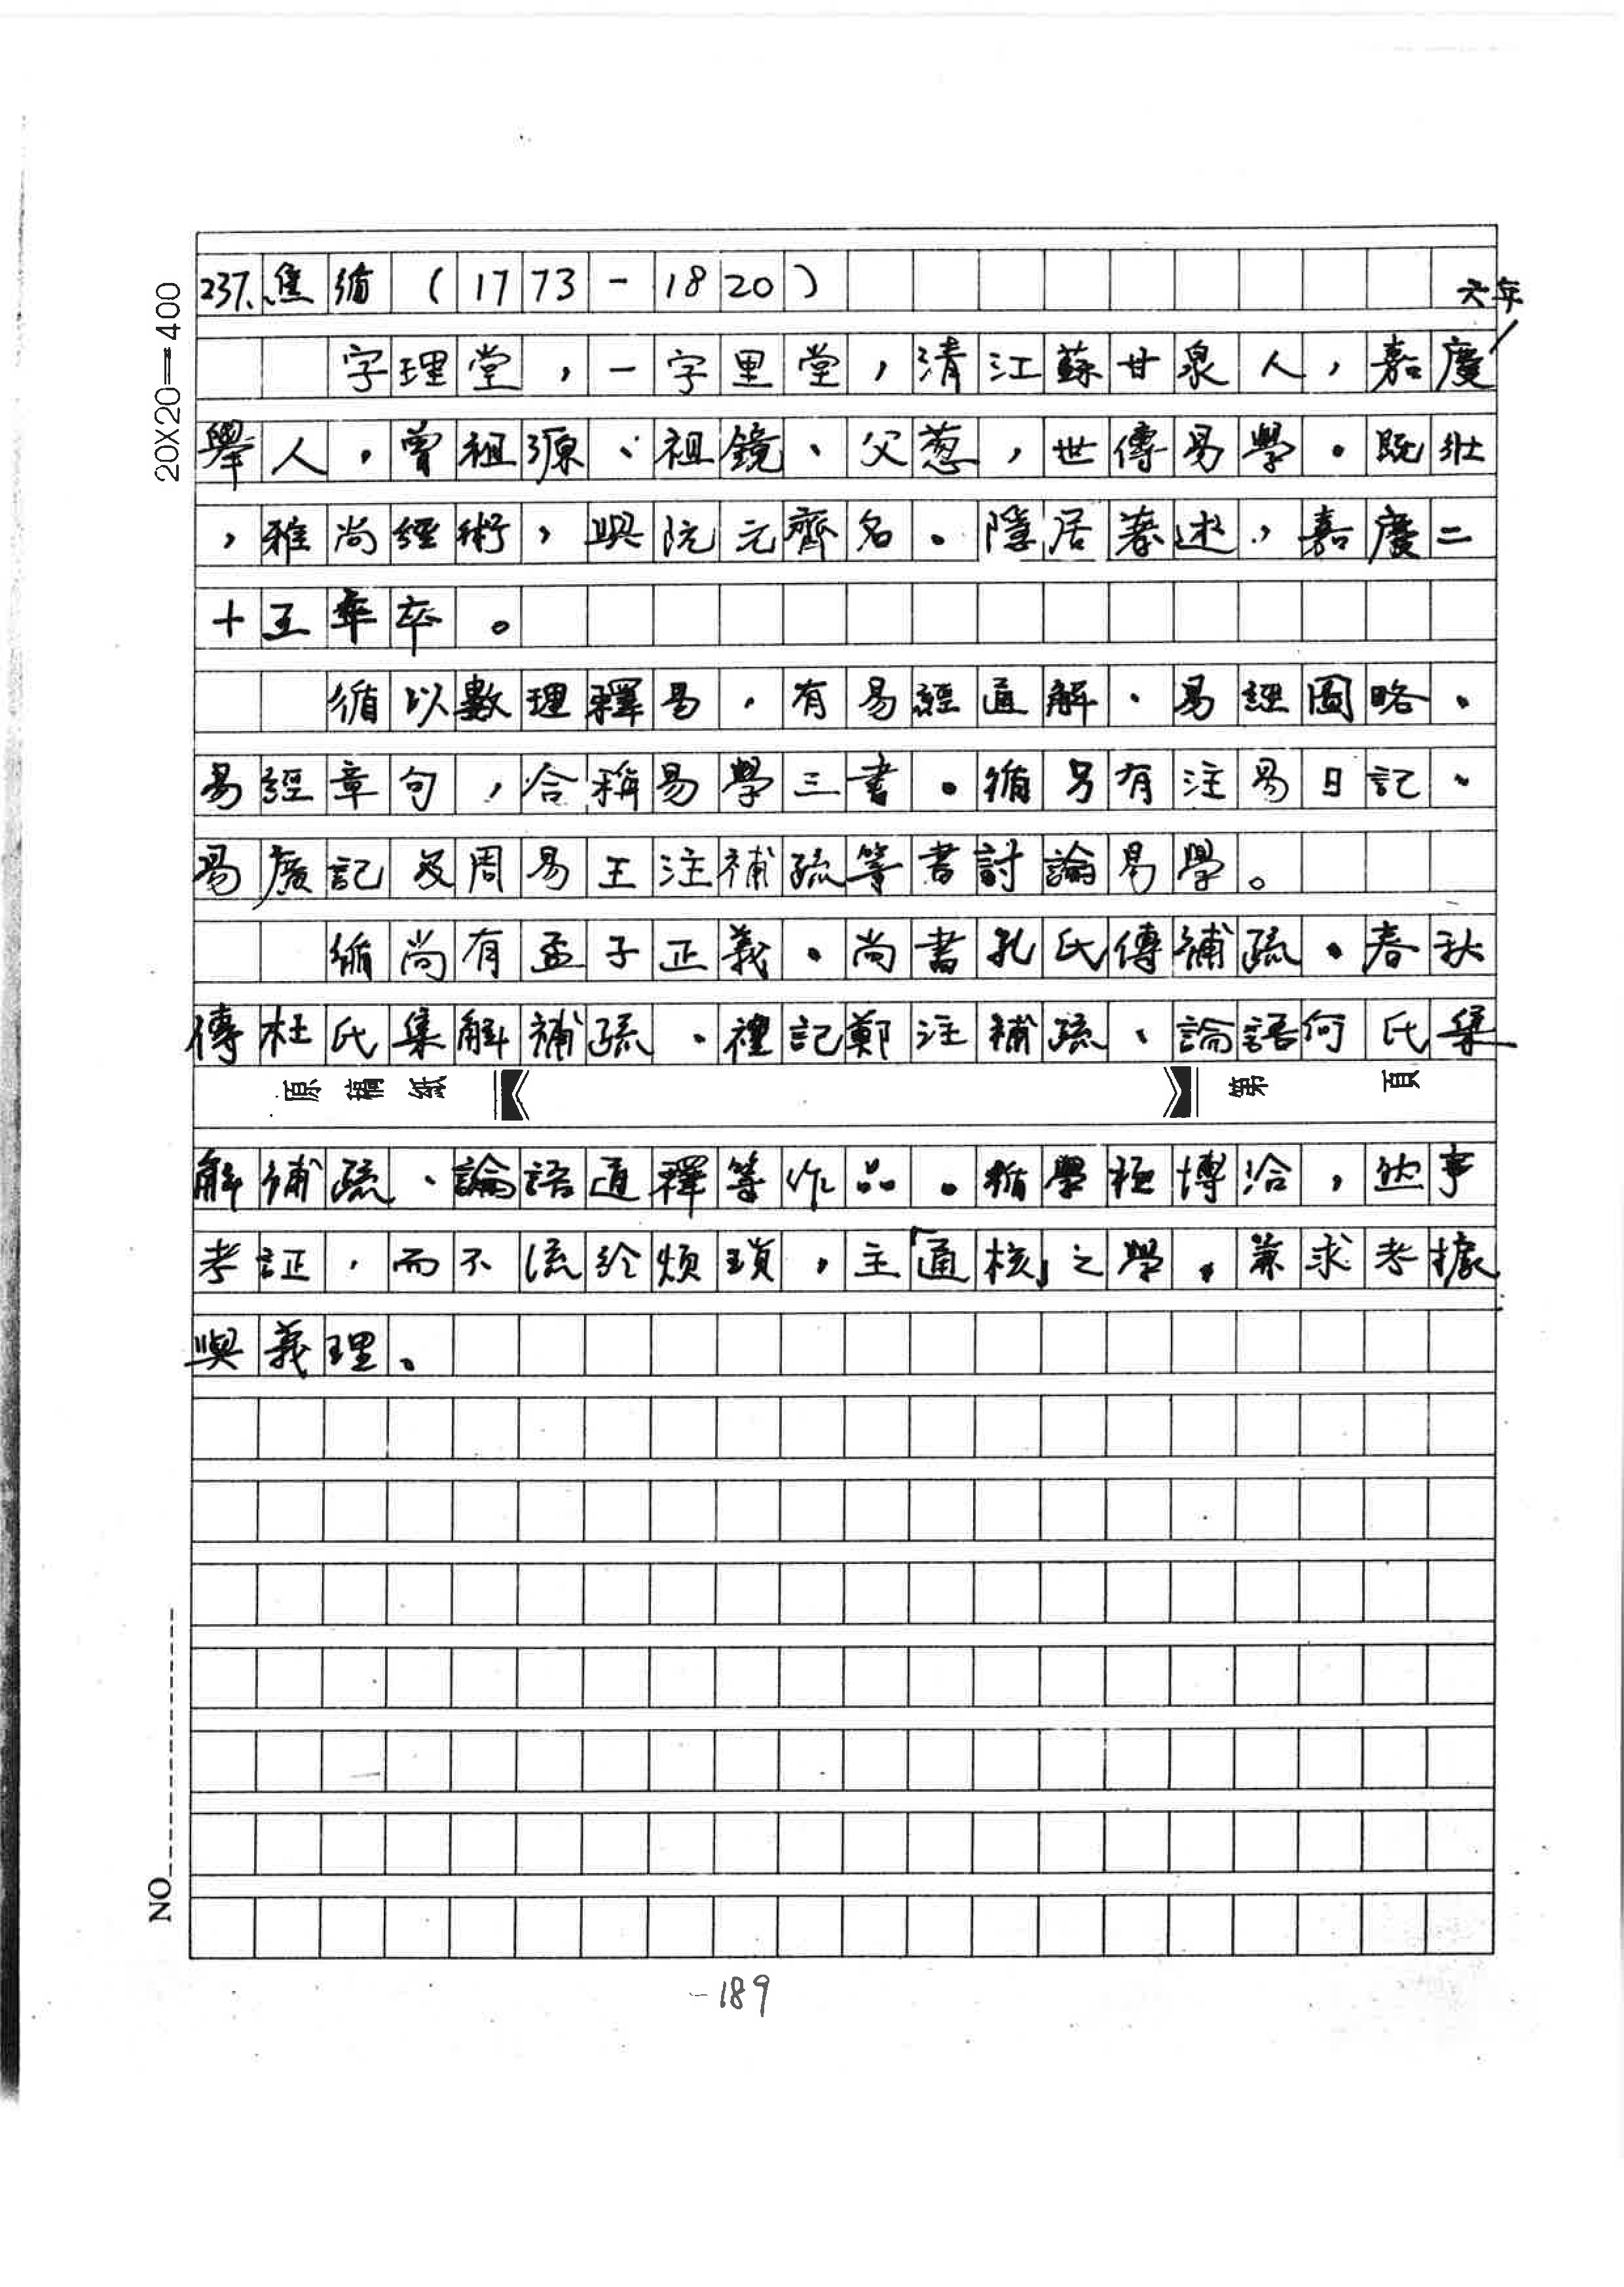 237、焦循(1773-1820)
六年
字理堂,一字里堂,清江蘇甘泉人,嘉慶
舉人,曾祖源、祖鏡、父葱,世傳易學。既壯
,雅尚經術,與阮元齊名。隱居著述,嘉慶二
十五年卒。
循以數理釋易,有易經通解、易經圖略、
易經章句,合稱易學三書。循另有注易日記、
易廣記及周易王注補疏等書討論易學。
循尚有孟子正義、尚書孔氏傳補疏、春秋
傳杜氏集解補疏、禮記鄭注補疏、論語何氏集
原稿紙 第 頁
解補疏、論語通釋等作品。循學極博洽,此事
考証,而不流於煩瑣,主「通核」之學,兼求考據
與義理。
20X20=400
NO
-189